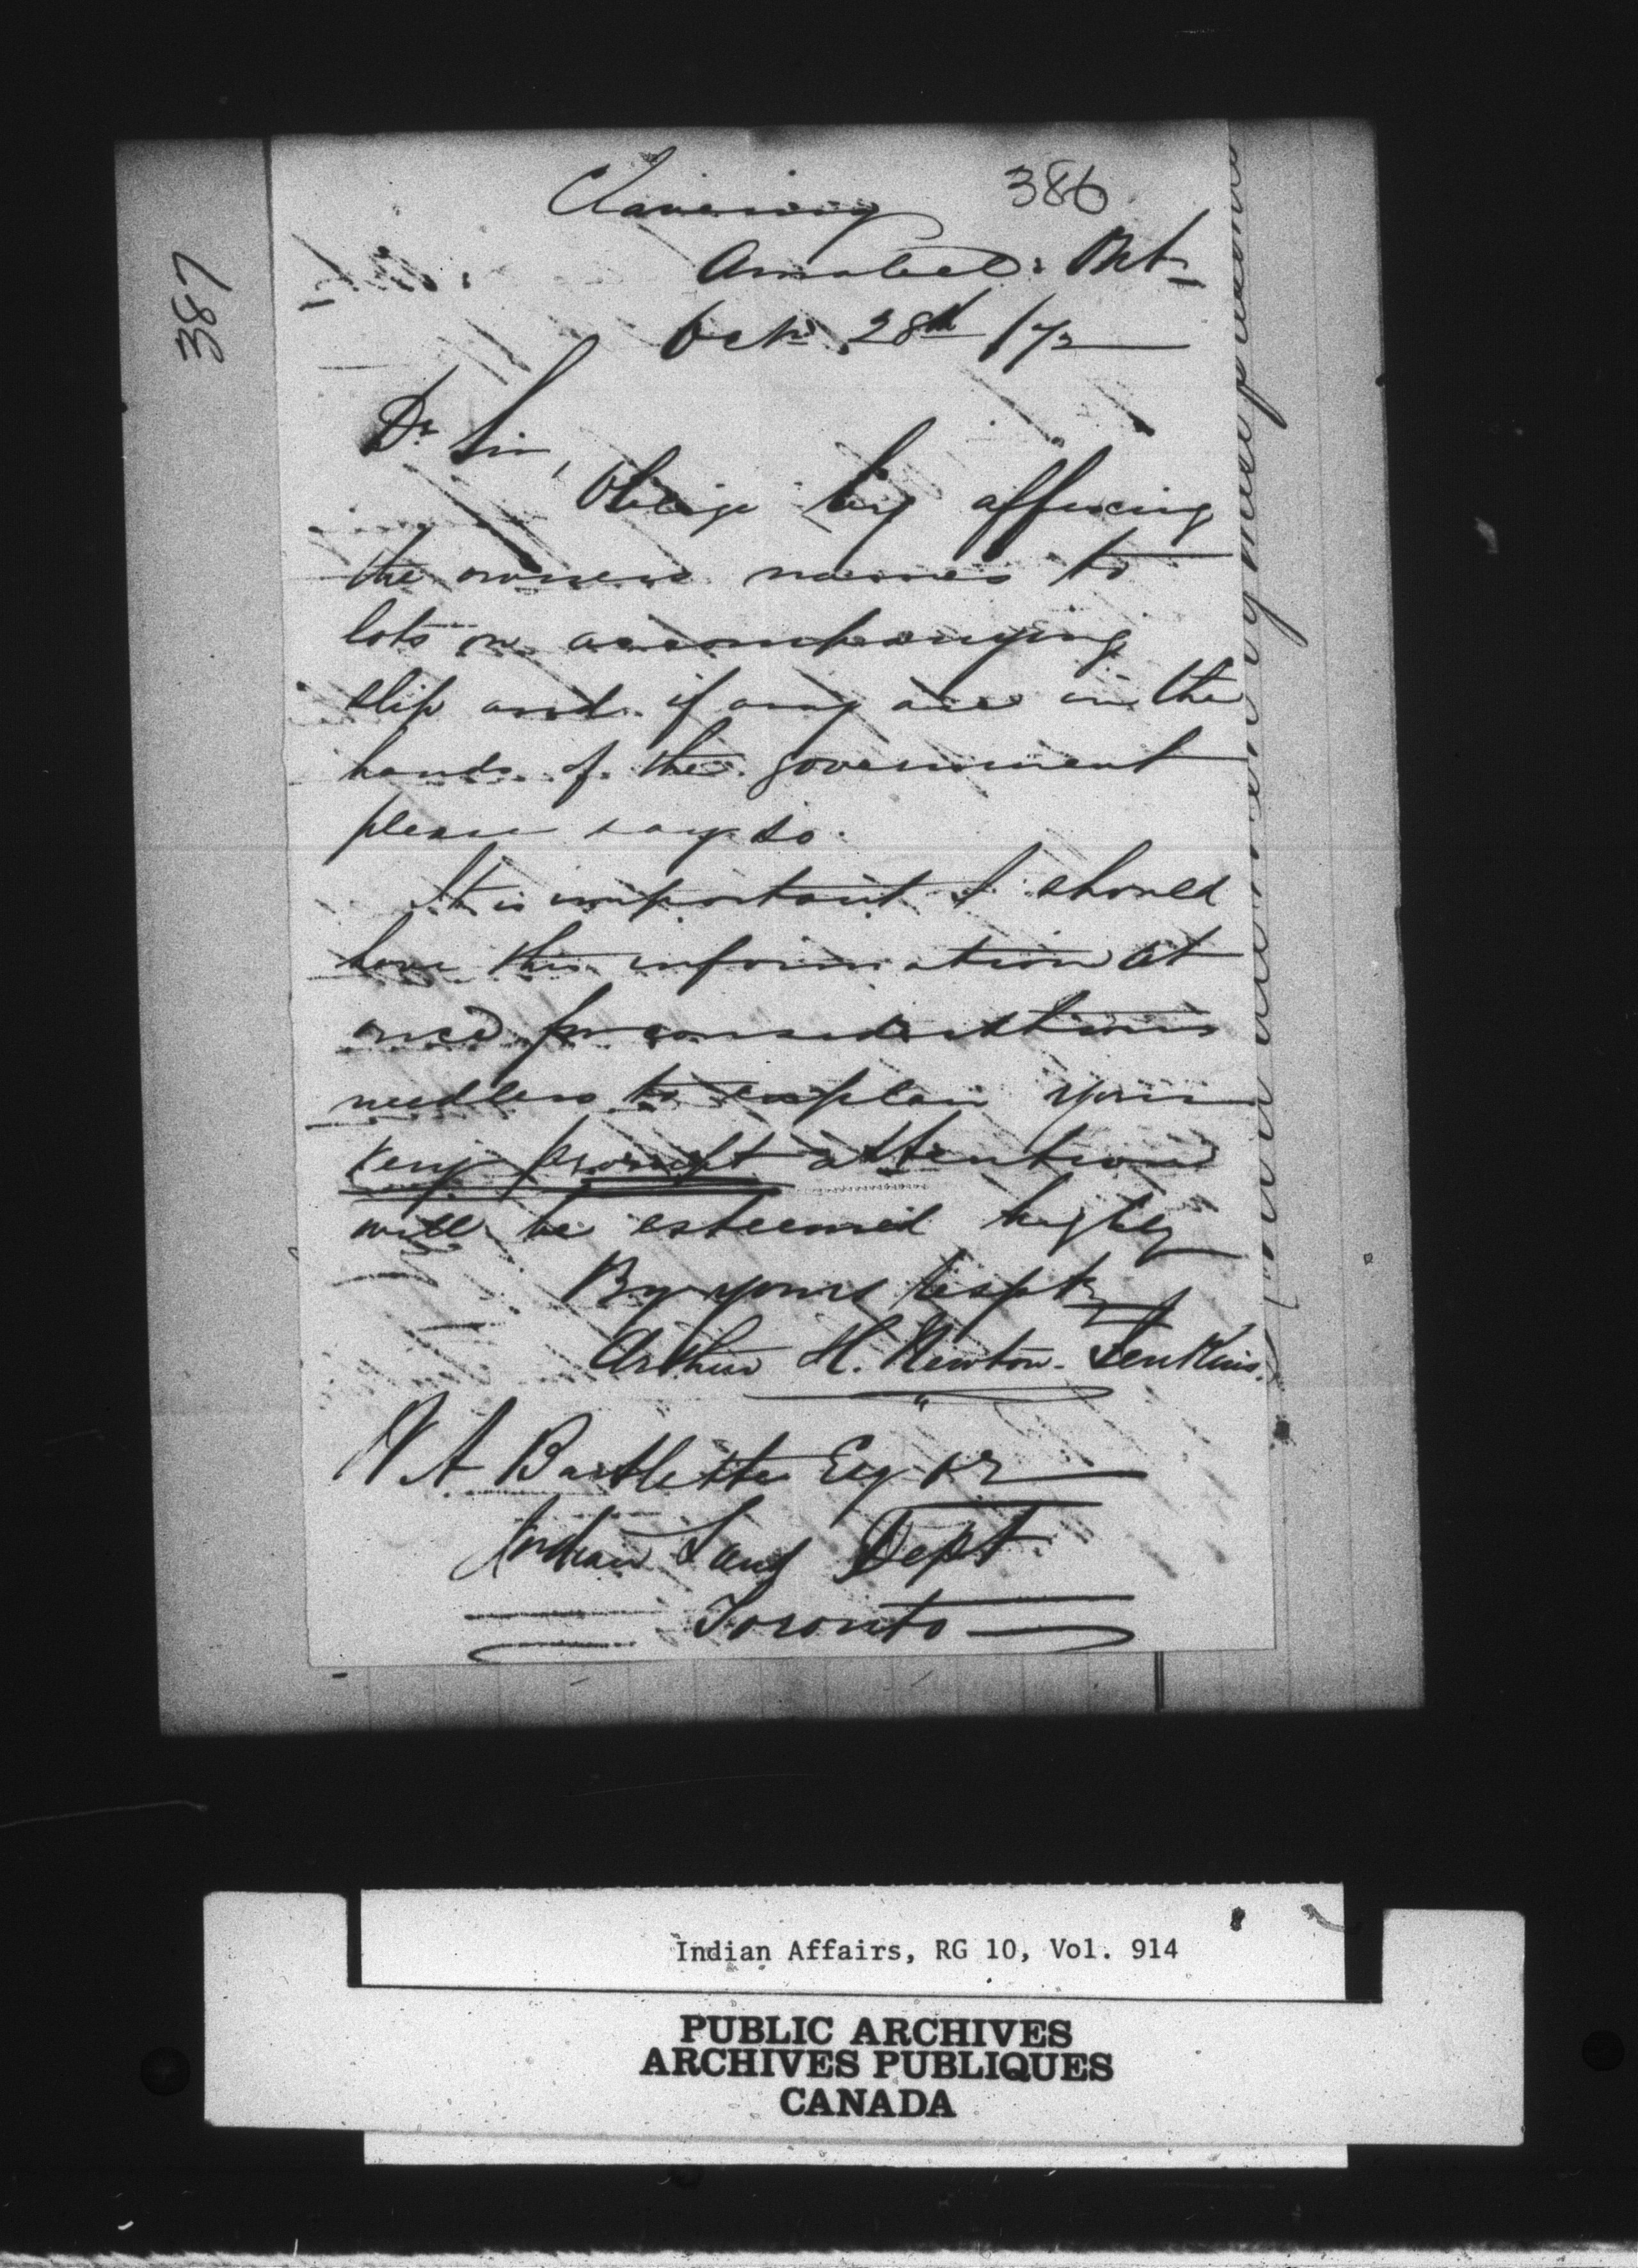 386
387
Clavering
Amabel: Ont
Octr 28th /72
Dr Sir,
Oblige by affixing
the owners names to
lots on accompanying
slip and if any are in the
hands of the government
please say so.
It is important I should
have this information at
once for considerations
needless to explain your
very prompt attention
will be esteemed highly
By yours respty
Arthur H. Newton-Jenkins.
Bartlette Esqr
Indian Land Dept.
Toronto
Indian Affairs, RG 10, Vol. 914
PUBLIC ARCHIVES
ARCHIVES PUBLIQUES
CANADA